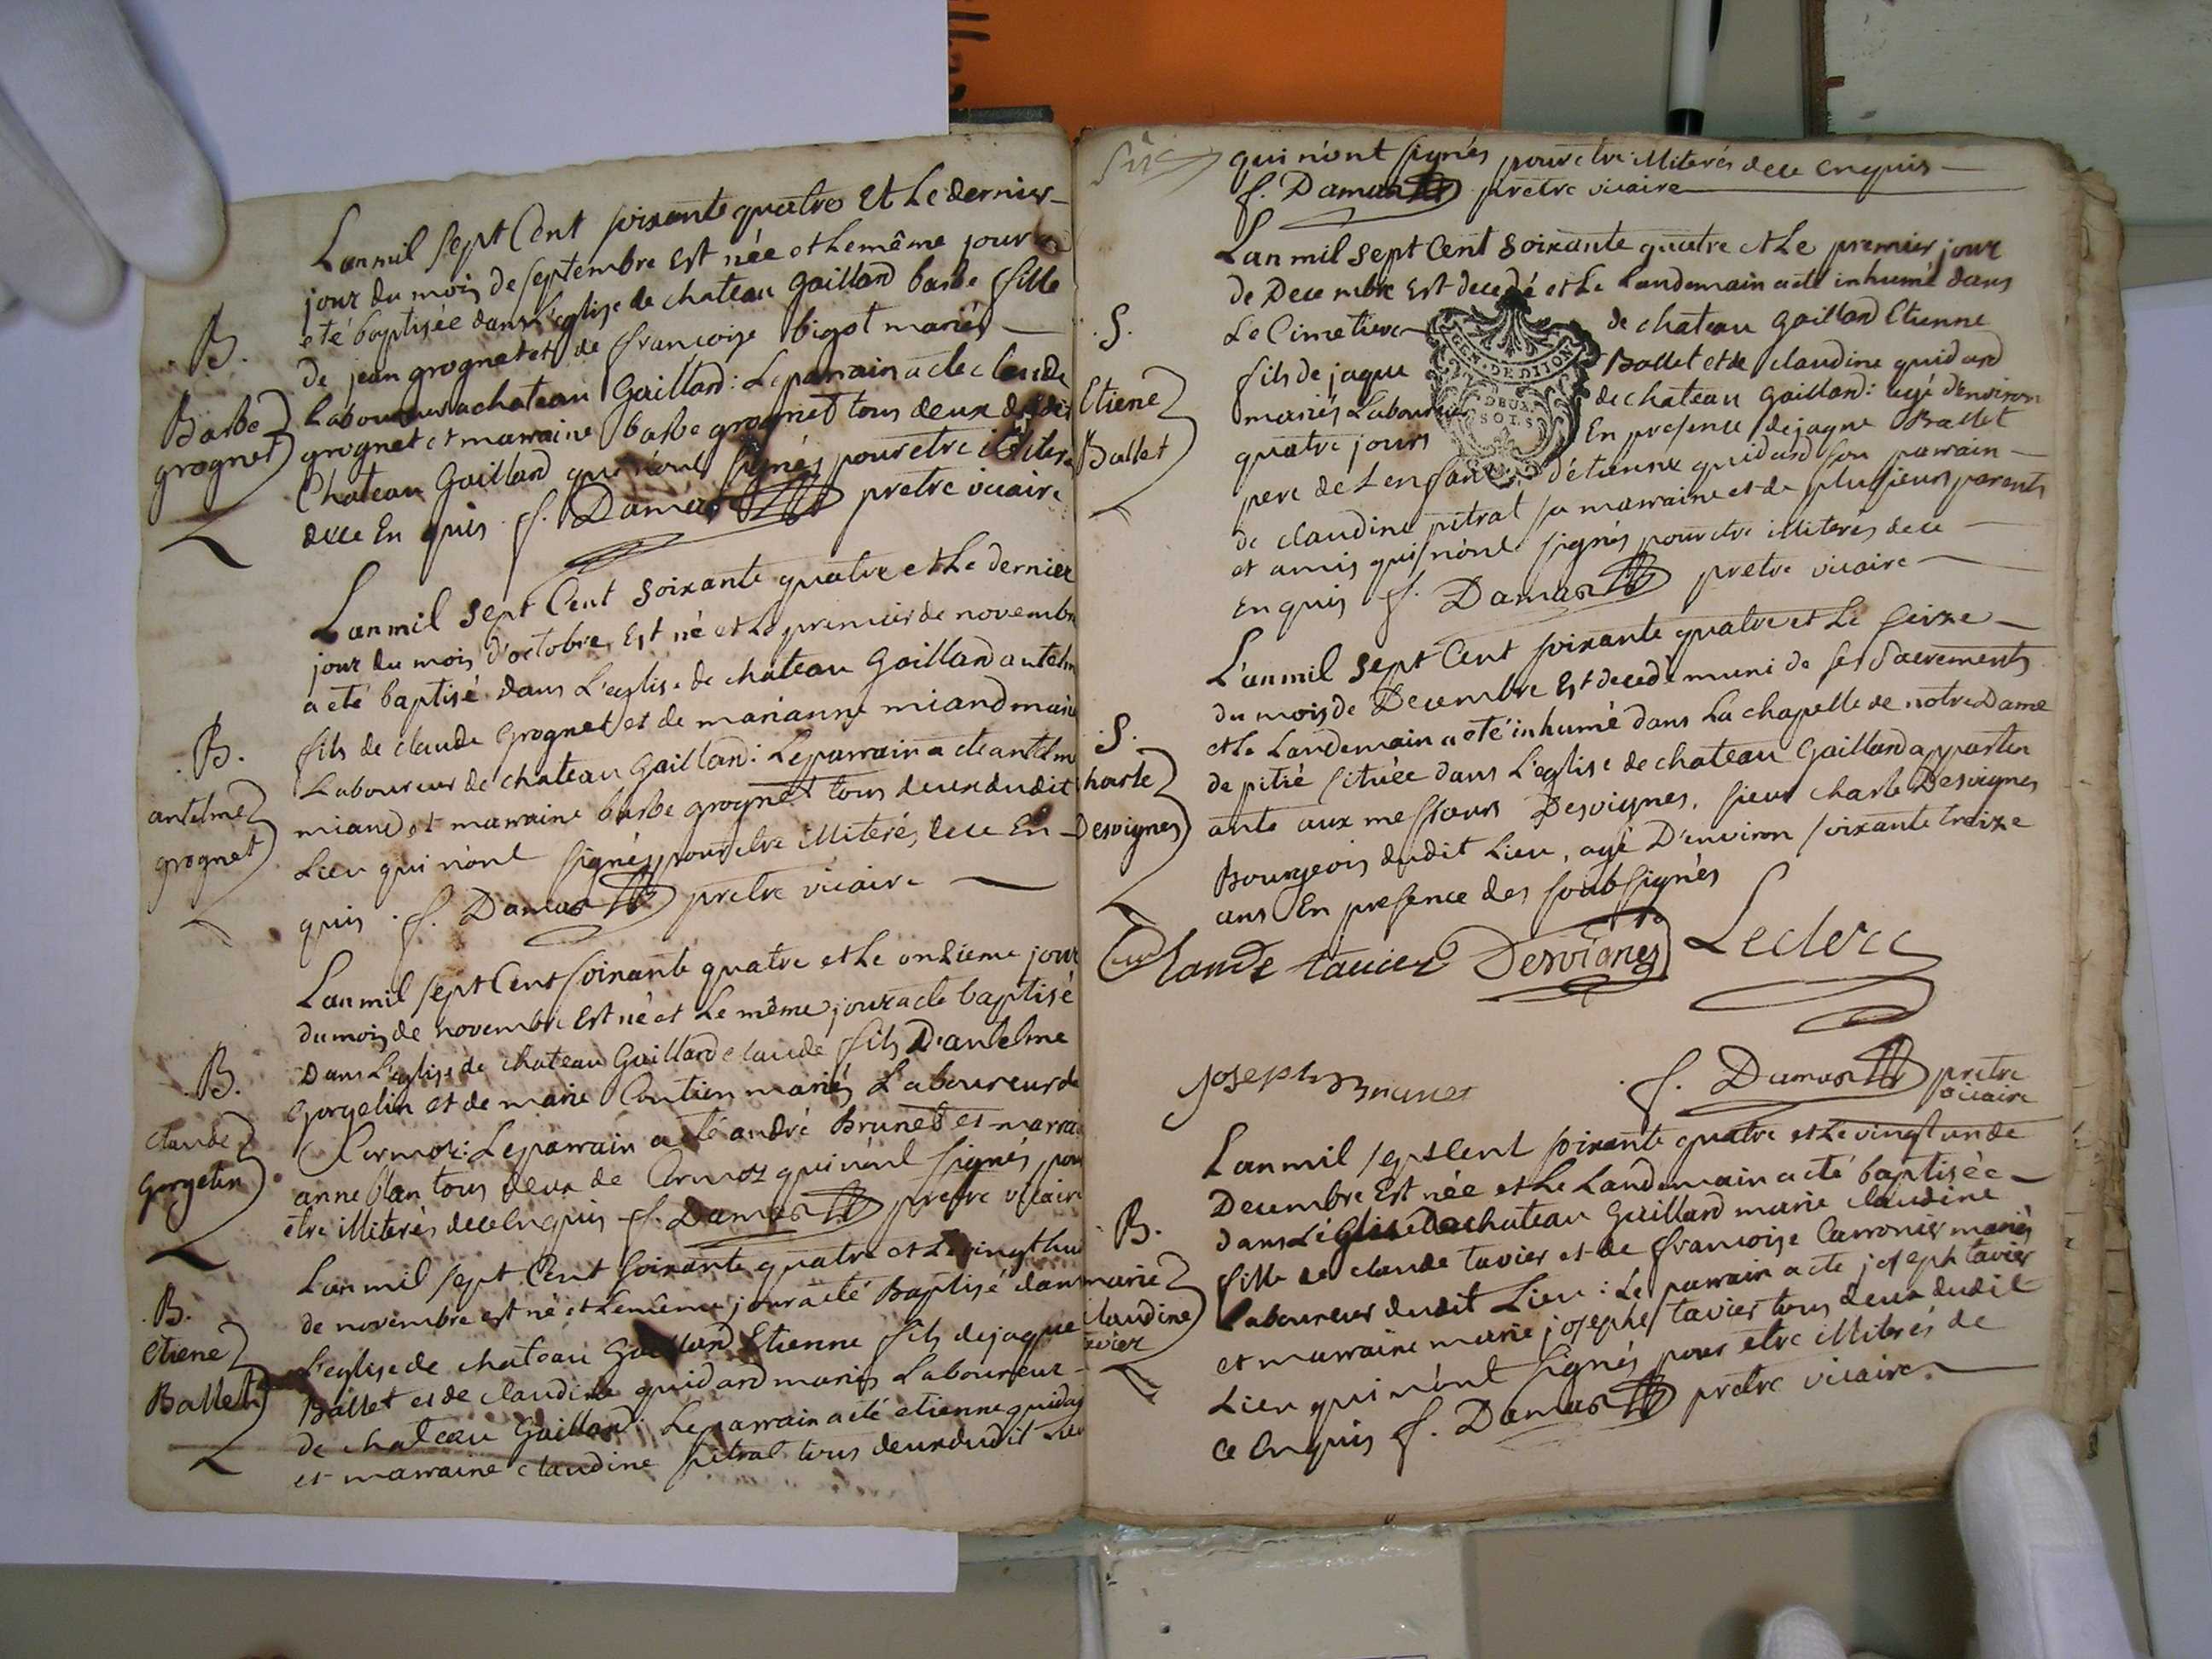 Lan mil sept Cent soixante quatre et Le dernier
jour du mois de septembre Est née et Le même jour a
eté baptisée dans L'eglise de chateau Gaillard barbe fille
de jean grognet et de francoise bigot mariés
Laboureur a chateau Gaillard: Le parrain a ete claude
grognet et marraine barbe grognet tous deux
Chateau Gaillard qui n'ont signés pour etre
dece En quis f. Damas pretre vicaire
B.
Barbe
grognet
Lan mil sept Cent soixante quatre et Le dernier
jour du mois d'octobre Est né et Le premier de novembre
a eté baptisé dans L'eglise de chateau Gaillard antelm
fils de claude Grognet et de marianne miand
Laboureur de chateau Gaillard: Le parrain a ete antelm
miand et marraine barbe grognet tous deux dudit
Lieu qui n'ont signés pour etre illiterés dece En
quis f. Damas pretre vicaire
B.
antelme
grognet
Lan mil sept Cent soixante quatre et Le onzieme jour
du mois de novembre Est né et Le même jour a ete baptisé
Dans L'eglise de chateau Gaillard claude fils D'antelme
Gorgelin et de marie mariés Laboureur de
Cormoz: Le parrain a eté andré Brunet et
anne tous deux de Cormoz qui n'ont signés pour
etre illiterés dece Enquis f. Damas pretre vicaire
B.
claude
Gorgelin
Lan mil sept Cent soixante quatre et Le vingt huit
de novembre est né et Le même jour a eté Baptisé dans
L'eglise de chateau Gaillard Etienne fils de jaque
Ballet et de claudine guidard mariés Laboureur
de chateau Gaillard: Le parrain a eté etienne
et marraine claudine pitrat tous deux dudit Lieu
B.
etiene
Ballet
qui n'ont signés pour etre illiterés dece enquis
f. Damas pretre vicaire
Lan mil sept Cent Soixante quatre et Le premier jour
de Decembre Est decedé et Le Landemain a eté inhumé dans
Le Cimetiere de chateau Gaillard Etienne
fils de jaque Ballet et de claudine guidard
mariés Laboureur de chateau Gaillard: agé d'environ
quatre jours En presence de jaque Ballet
pere de L'enfant, d'etienne guidard son parrain
de claudine pitrat sa marraine et de plusieurs parents
et amis qui n'ont signés pour etre illiterés dece
Enquis f. Damas pretre vicaire
GEN. DE DIJON
DEUX
SOLS
S.
Etiene
Ballet
L'an mil sept Cent soixante quatre et Le seize
du mois de Decembre Est decedé muni de ses Sacrements
et Le Landemain a eté inhumé dans La chapelle de notre Dame
de pitié située dans L'eglise de chateau Gaillard apparten
ante aux messieurs Desvignes, sieur charle Desvignes
Bourgeois dudit Lieu, agé D'environ soixante treize
ans En presence des soubsignés
S.
charle
Desvignes
Claude tavier Desvignes Leclerc
joseph Brunet f. Damas pretre
vicaire
Lan mil sept Cent soixante quatre et Le vingt un de
Decembre Est née et Le Landemain a eté baptisée
dans L'Eglise de chateau Gaillard marie claudine
fille de claude tavier et de francoise Carronier mariés
Laboureur dudit Lieu: Le parrain a ete joseph tavier
et marraine marie josephe tavier tous deux dudit
Lieu qui n'ont signés pour etre illiterés de
ce Enquis f. Damas pretre vicaire
B.
marie
claudine
tavier